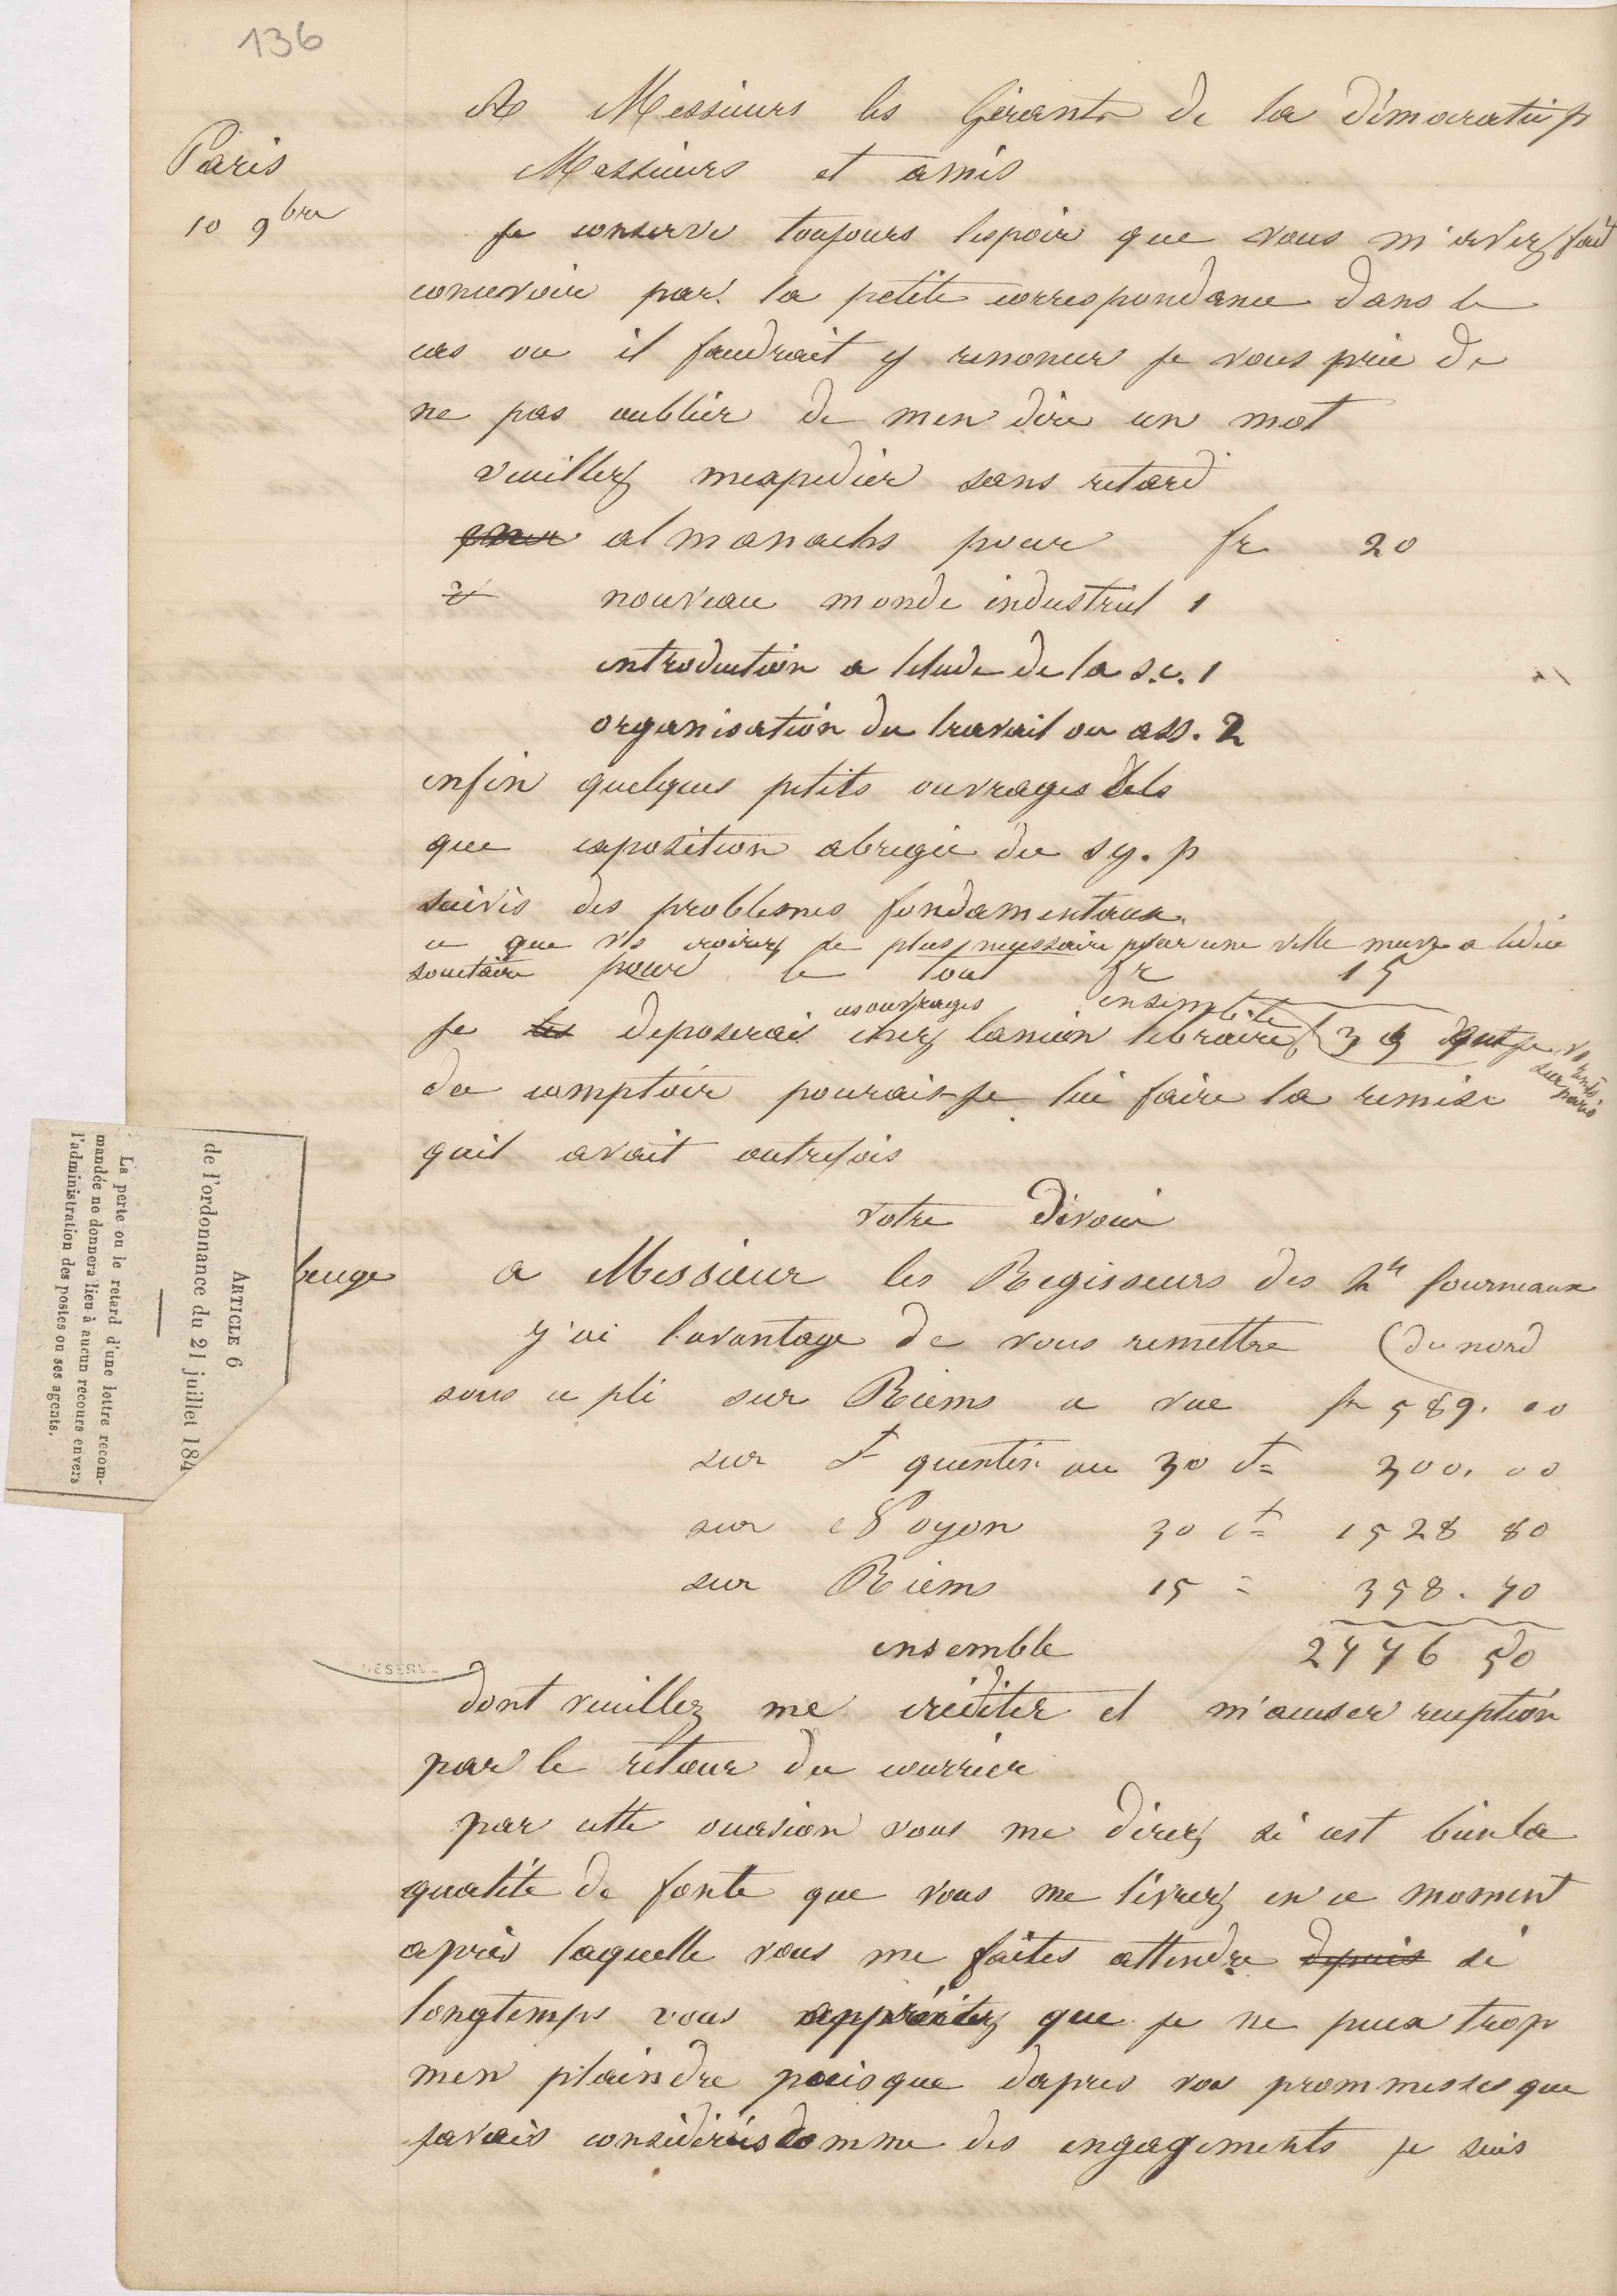 136
A Messieurs les Gérants de la démocratie p
Paris
Messieurs et amis
10 9bre
je conserve toujours lespoir que vous m'avez fait
concevoir par la petite correspondance dans le
cas ou il faudrait y renoncer je vous prie de
ne pas oublier de men dire un mot
veuillez mexpedier sans retard
almanachs pour fr 20
nouveau monde industriel 1
introduction a letude de la s.c. 1
organisation du travail ou ass. 2
enfin quelques petits ouvrages tels
que exposition abregée du sy. p
suivis des problesmes fondamentaux
ce que vs croirez le plus necessaire pour une ville a lidée
societaire pour le tout fr 15
ces ouvrages ensemble
je les deposerai chez lanion libraire 35 dont je vs
crédite sur paris
du comptoir pourais-je lui faire la remise
quil avait autrefois
votre dévoué
beuge
a Messieur les Regisseurs des hts fourneaux
j'ai lavantage de vous remettre (du nord
sous ce pli sur Reims a vue fr 589. 00
sur St quentin au 30 ct 300. 00
sur Noyon 30 ct 1528 80
sur Reims 15 = 358. 70
ensemble 2776 50
dont veuillez me créditer et m'accuser reception
par le retour du courrier
par cette occasion vous me direz si cest bien la
qualité de fonte que vous me livrez en ce moment
après laquelle vous me faites attendre depuis si
longtemps vous appréciez que je ne puex trop
men plaindre puisque dapres vos prommesses que
javais considérées comme des engagements je suis
ARTICLE 6
de l'ordonnance du 21 juillet 184
La perte ou le retard d'une lettre recom-
mandée ne donnera lieu à aucun recours envers
l'administration des postes ou ses agents.